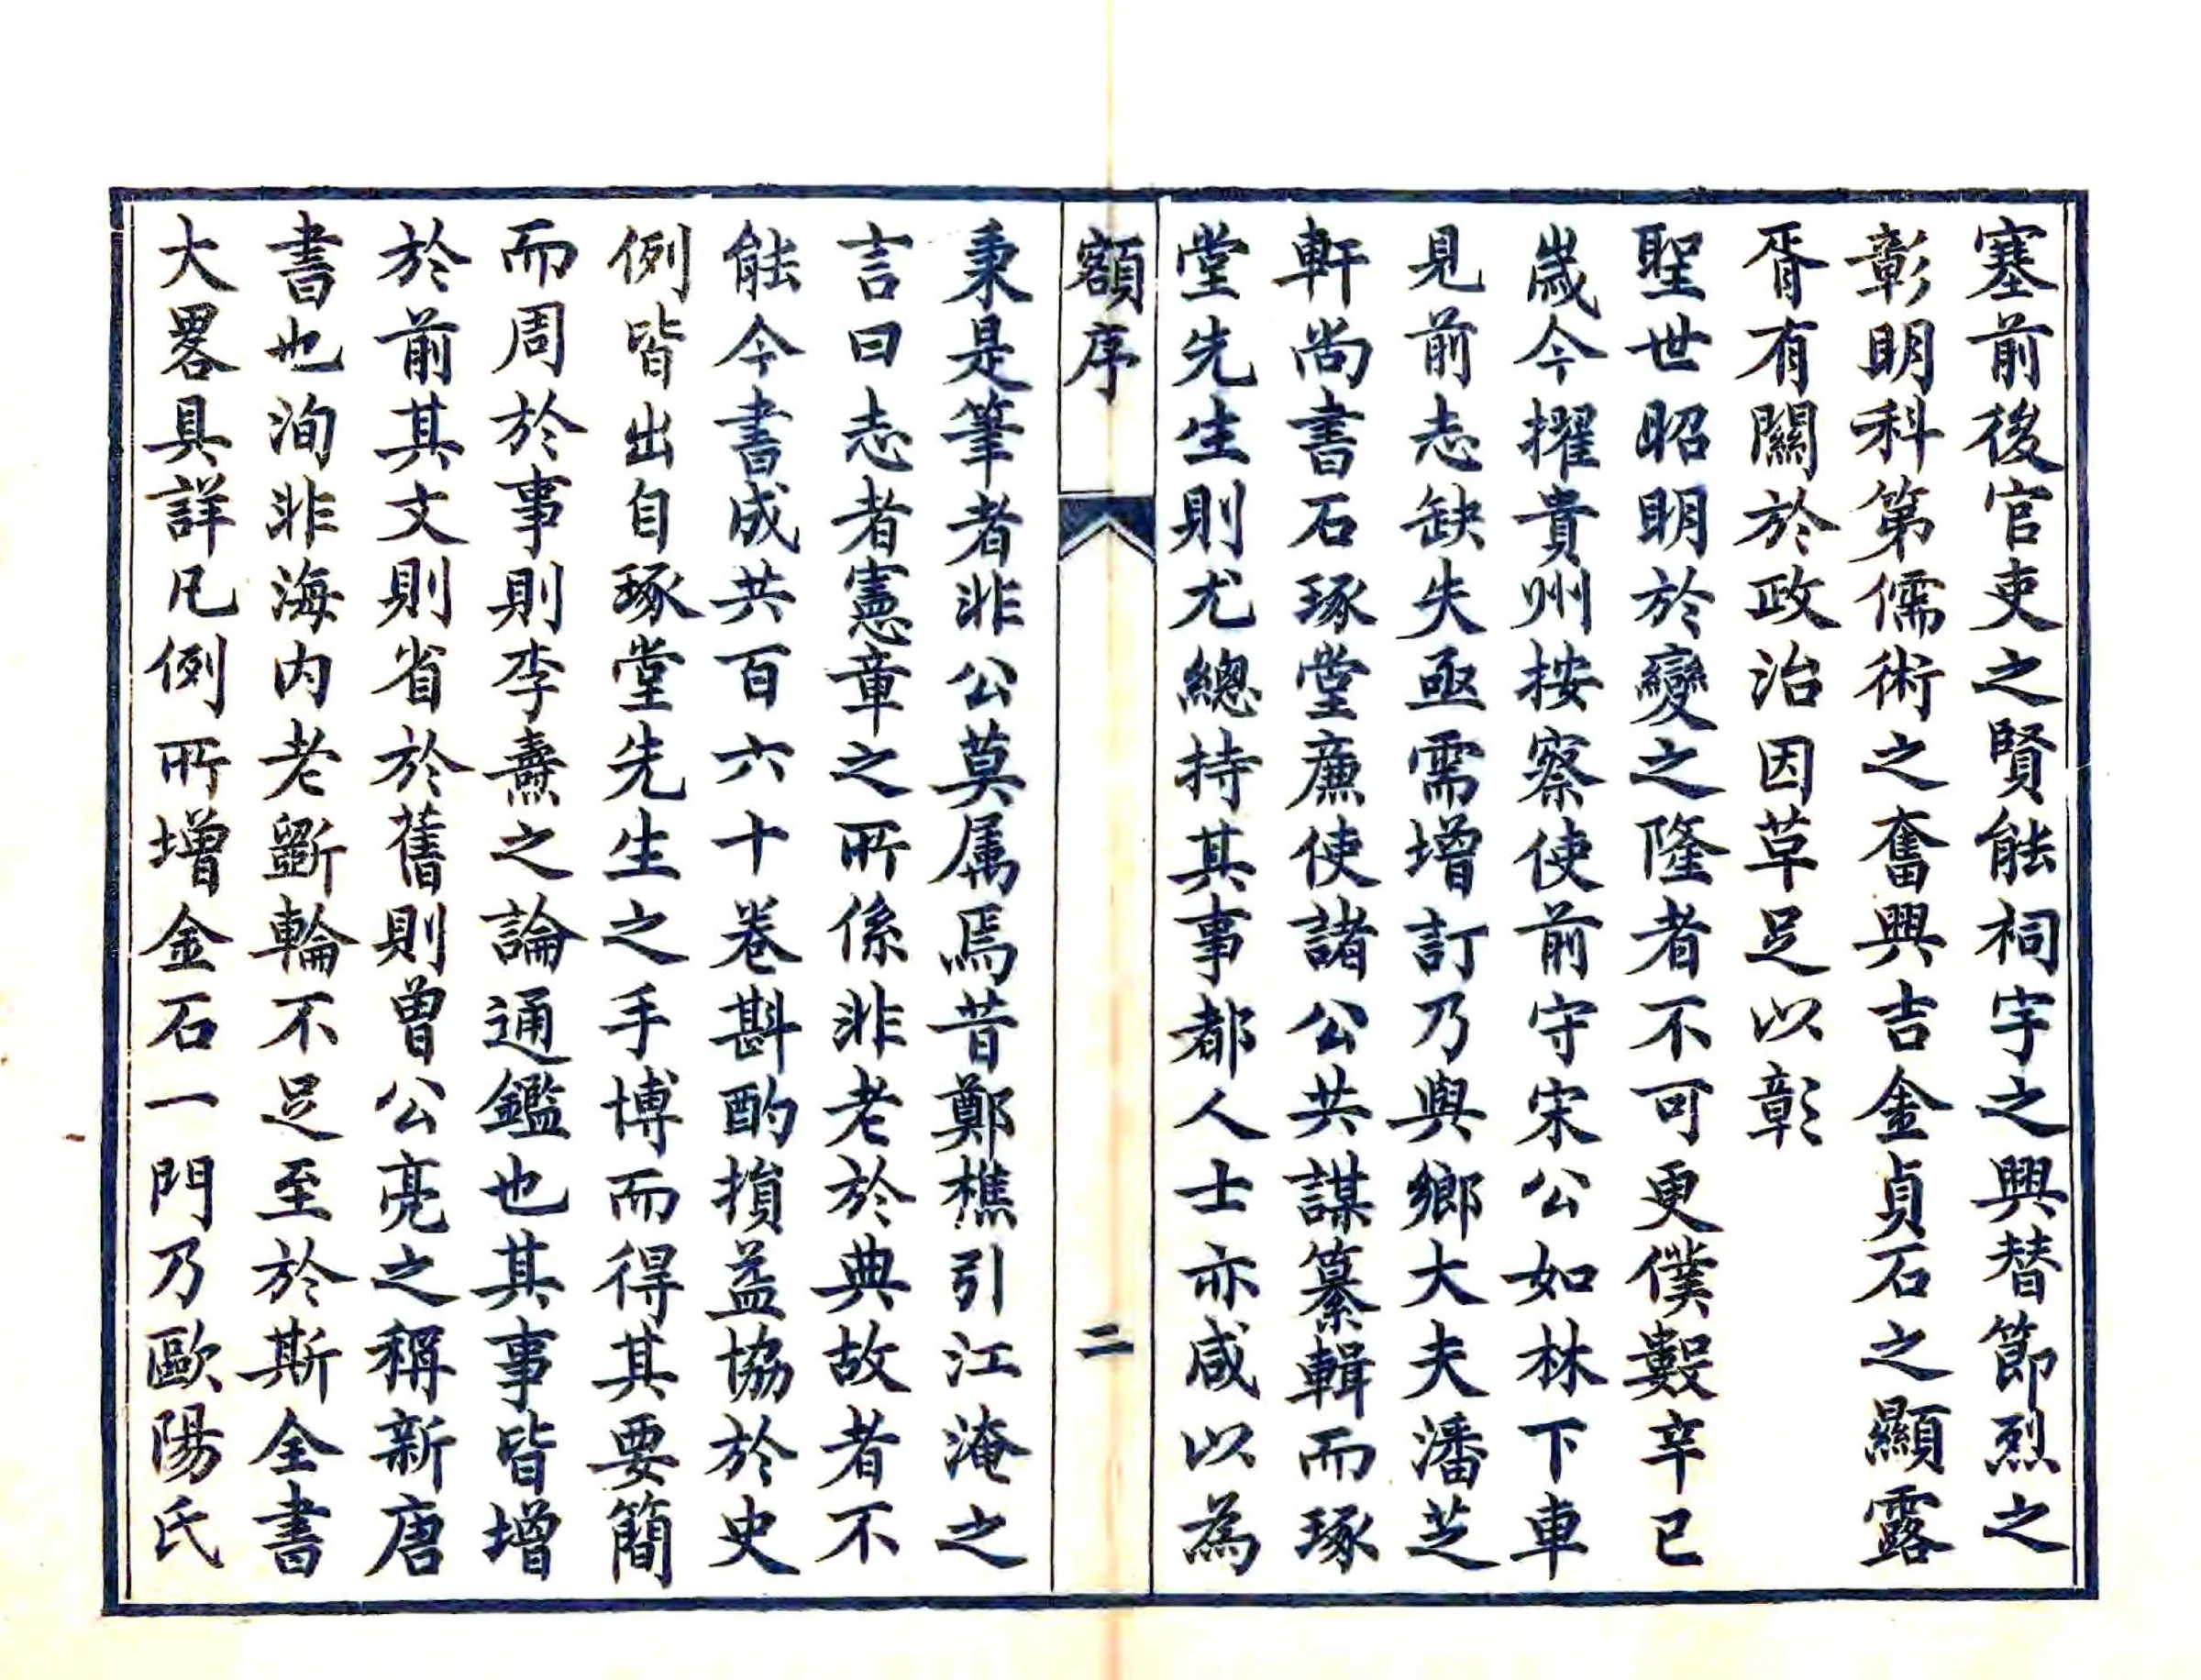 塞前後官吏之賢能祠宇之興替節烈之
彰明科第儒術之奮興吉金貞石之顯露
胥有關於政治因草足以彰
聖世昭明於變之隆者不可更僕數辛巳
嵗今擢貴州按察使前守宋公如林下車
見前志缺失亟需增訂乃與鄉大夫潘芝
軒尚書石琢堂亷使諸公共謀纂輯而琢
堂先生則尤總持其事都人士亦咸以為
額序
二
秉是筆者非公莫属焉昔鄭樵引江淹之
言曰志者憲章之所係非老於典故者不
能今書成共百六十卷斟酌損益協於史
例皆出自琢堂先生之手博而得其要簡
而周於事則李燾之論通鑑也其事皆增
於前其文則省於舊則曾公亮之稱新唐
書也洵非海内老斲輪不足至於斯全書
大畧具詳凡例所增金石一門乃歐陽氏